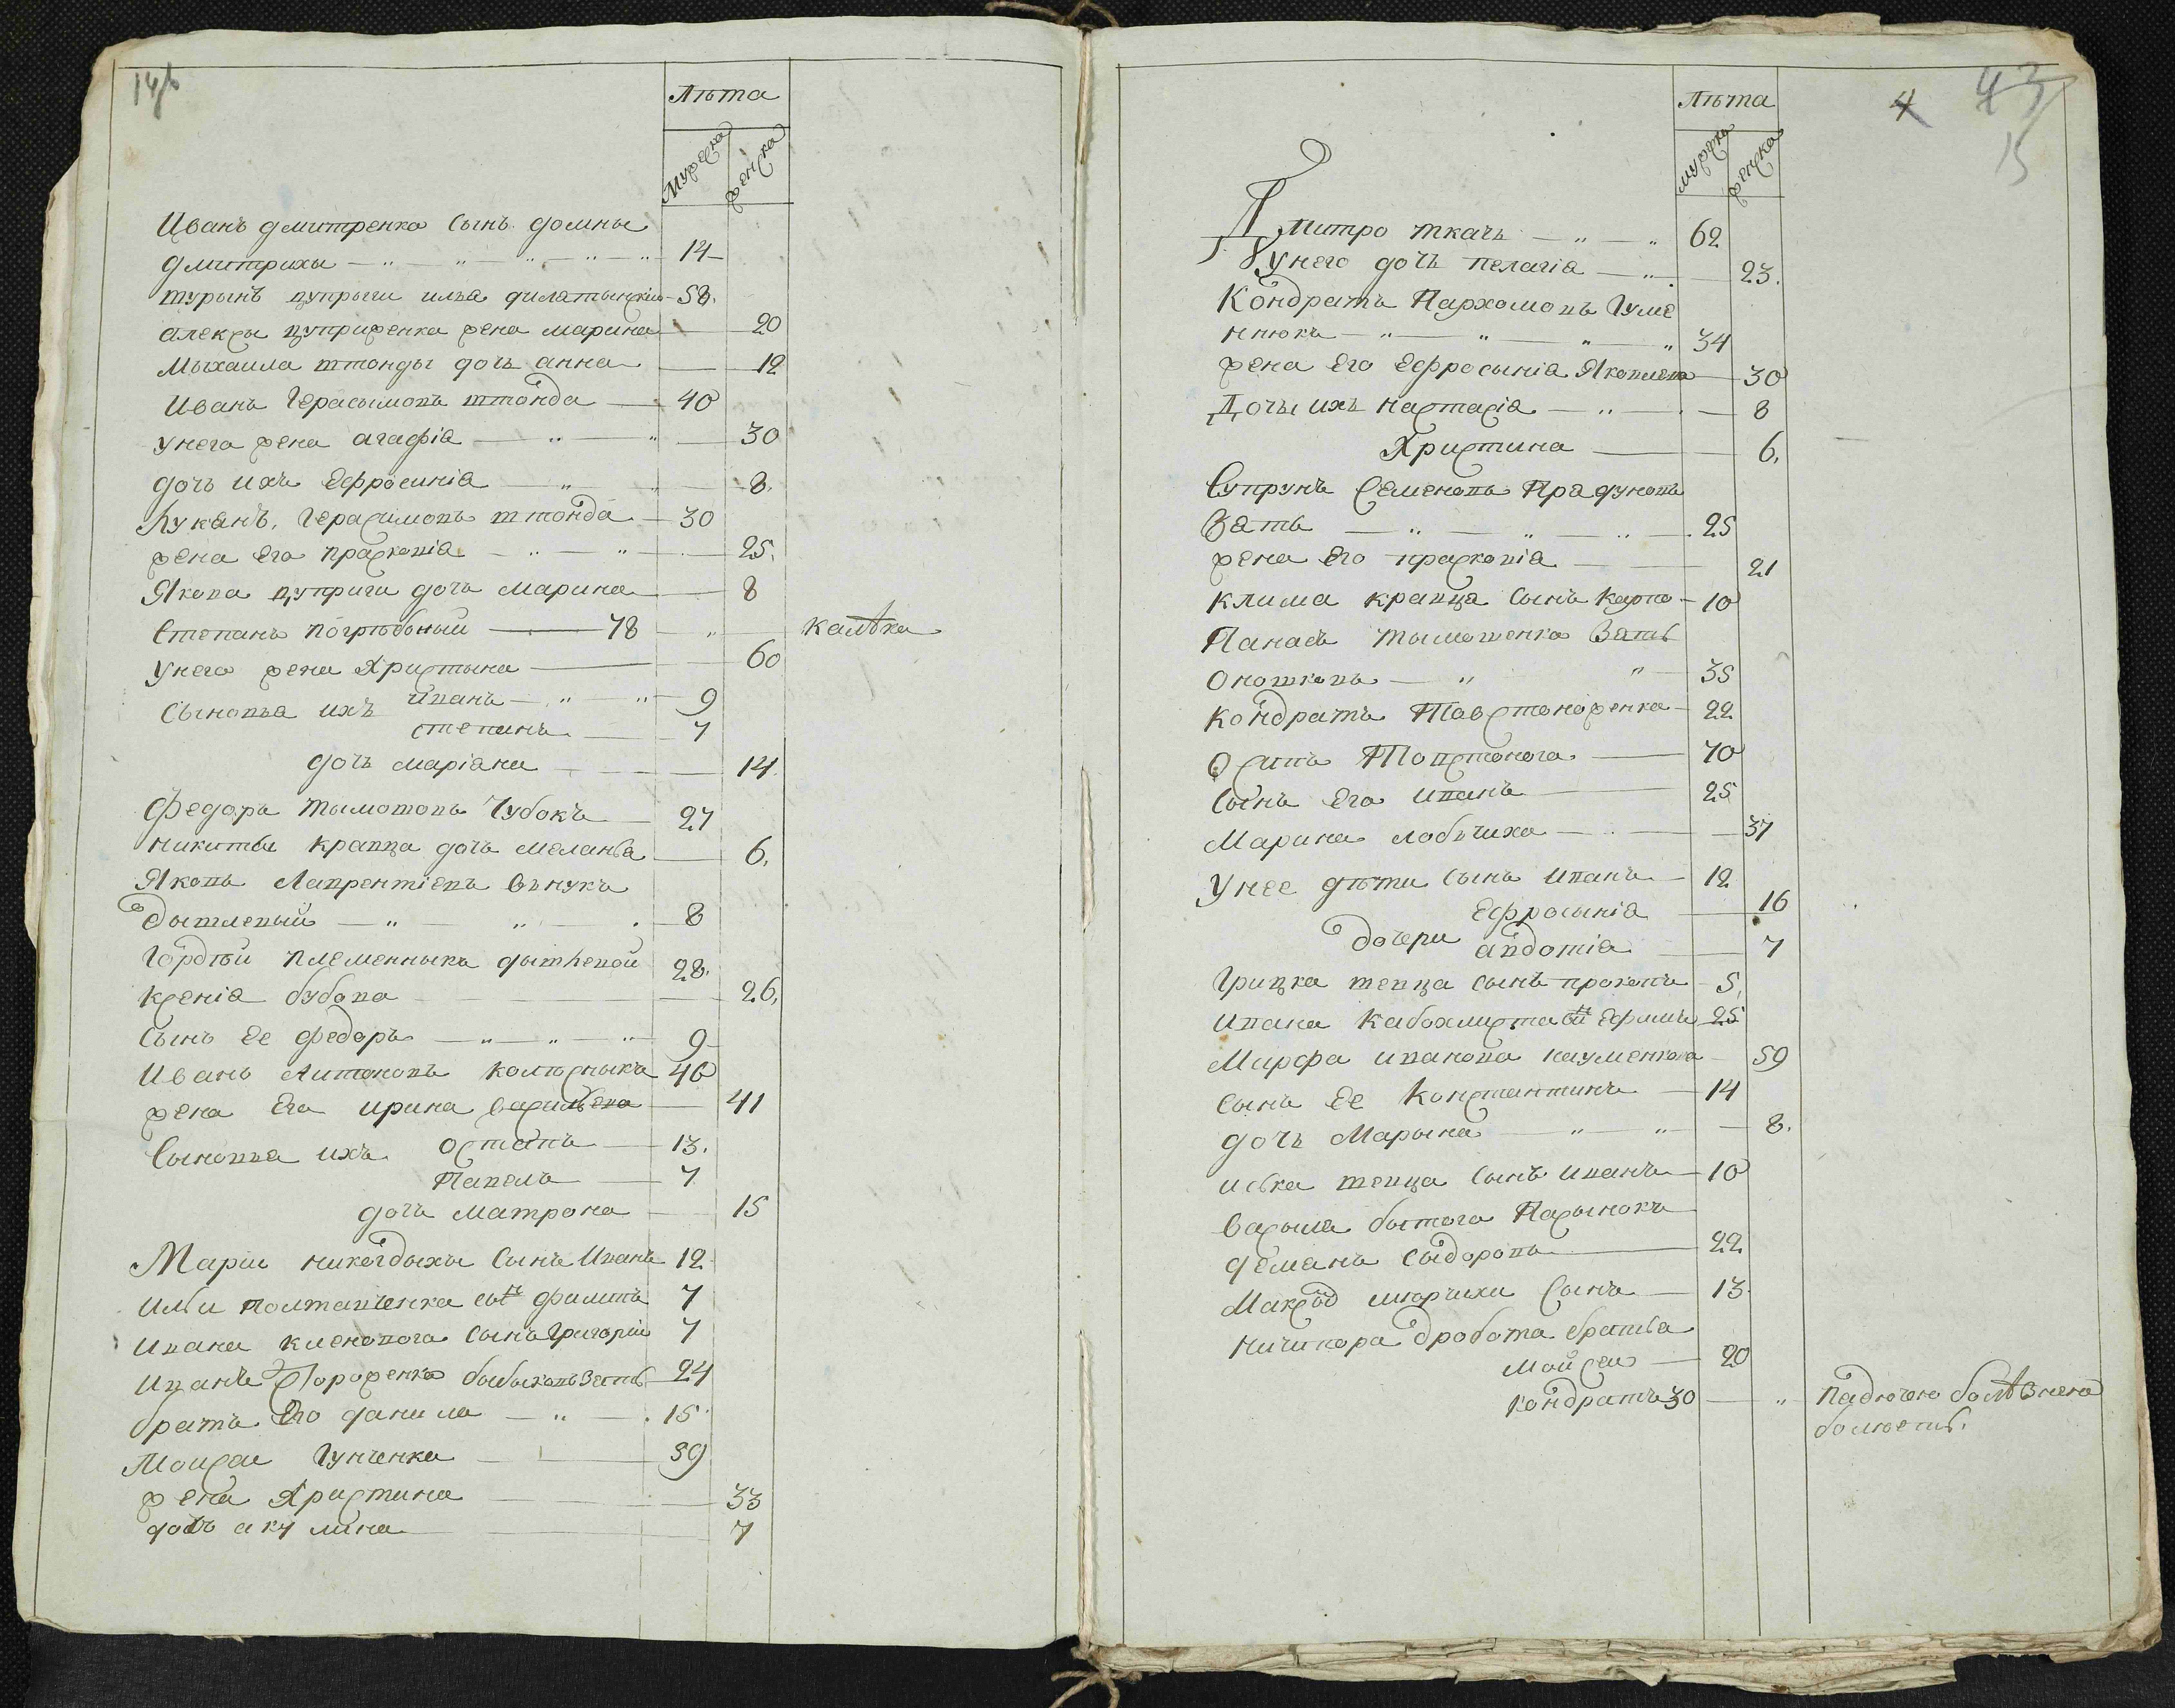 14б
Лѣта
Мужеска
женска
Иванъ дмитренко Сынъ домны
дмитрихы — 14
алексы цуприженка жена марина — 20
Мыхаила штонды дочь анна — 12
Иванъ Герасымовъ штонда — 40
унего жена агафія — 30
дочь ихъ Ефросинія — 8.
Лукянъ Герасимовъ штонда — 30
жена Его прасковія — 25.
Якова цуприги дочь марина — 8
Степанъ погрѣбоный — 78 — калѣка
унего жена Христына — 60
Сыновья ихъ иванъ — 9
степанъ — 7
дочь маріана — 14
Федоръ тымотовъ Чубокъ — 27
Никиты кравца дочь меланья — 6.
Яковъ Лаврентіевъ внукъ
дытлевый — 8
Гордѣй племенныкъ — 28.
ксенія бубова — 26.
Сынъ Ее федоръ — 9
Иванъ Антоновъ колѣсныкъ 46
жена Его ирина васильева — 41
Сыновья ихъ остапъ — 13.
Павелъ — 7
дочь матрона — 15
Маріи Сынъ Иванъ 12
Ильи полтавченка сынъ филипъ 7
ивана кленового Сынъ Григорій 7
Иванъ зять 24
братъ Его данила — 15
Моисей Гунченко — 39
жена Христина — 33
дочь акулина — 7
4
43
15
Лѣта
мужска
женска
Дмитро ткачь — 62
унего дочь пелагія — 23.
Кондратъ Пархомовъ Гуме
нюкъ — 34
жена Его Ефросынія Яковлева — 30
Дочы ихъ настасія — 8
Христина — 6.
Супрунъ Семеновъ Прадуновъ
Зять — 25
жена Его прасковія — 21
клима кравца Сынъ карпо — 10
Панасъ тымошенко Зять
Оношковъ — 35
кондратъ Товстоноженко — 22
Осипъ Товстонога — 70
Сынъ Его иванъ — 25
Марина лобачиха — 37
унее дѣти Сынъ иванъ — 12
Ефросынія — 16
дочери авдотія — 7
Грицка шевца сынъ прокопъ — 5.
Ивана сынъ Ефимъ 25
Марфа иванова науменкова — 59
сынъ Ее константинъ — 14
дочь Марына — 8.
иська шевца сынъ иванъ — 10
васыля бытого Пасынокъ
демянъ сыдоровъ — 22
Сынъ — 13.
ничипора дробота братья
Мойсей — 20
кондратъ 30 — падючею болѣзнею
болюетъ.